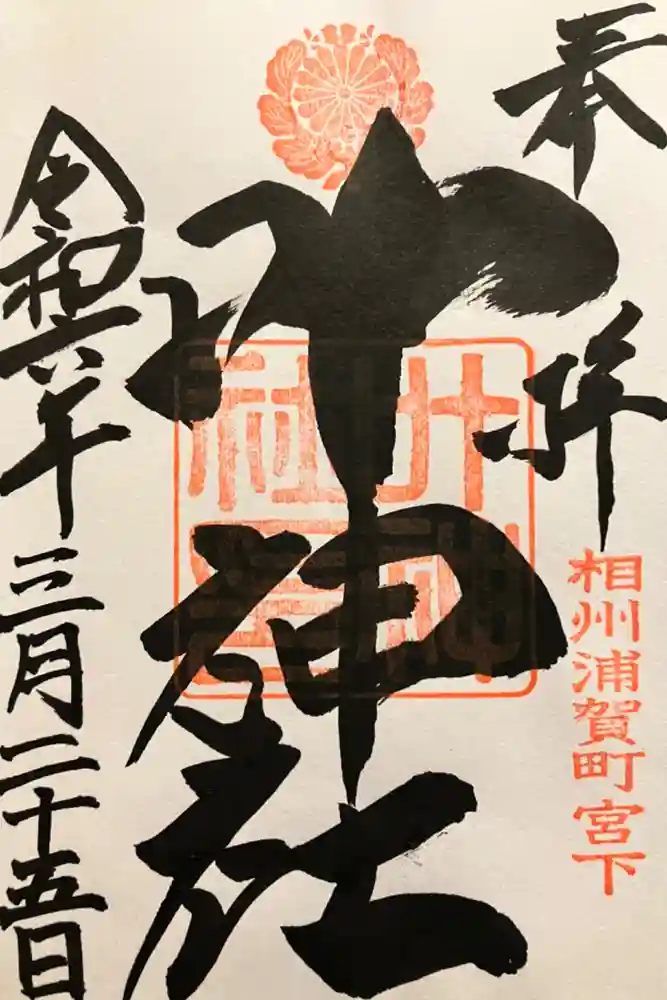 奉拝
相州浦賀町宮下
叶神社
叶神社
令和六年三月二十五日